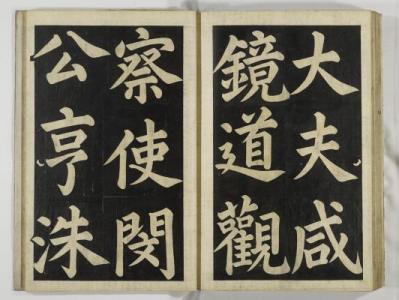 大夫咸
鏡道觀
察使閔
公亨洙